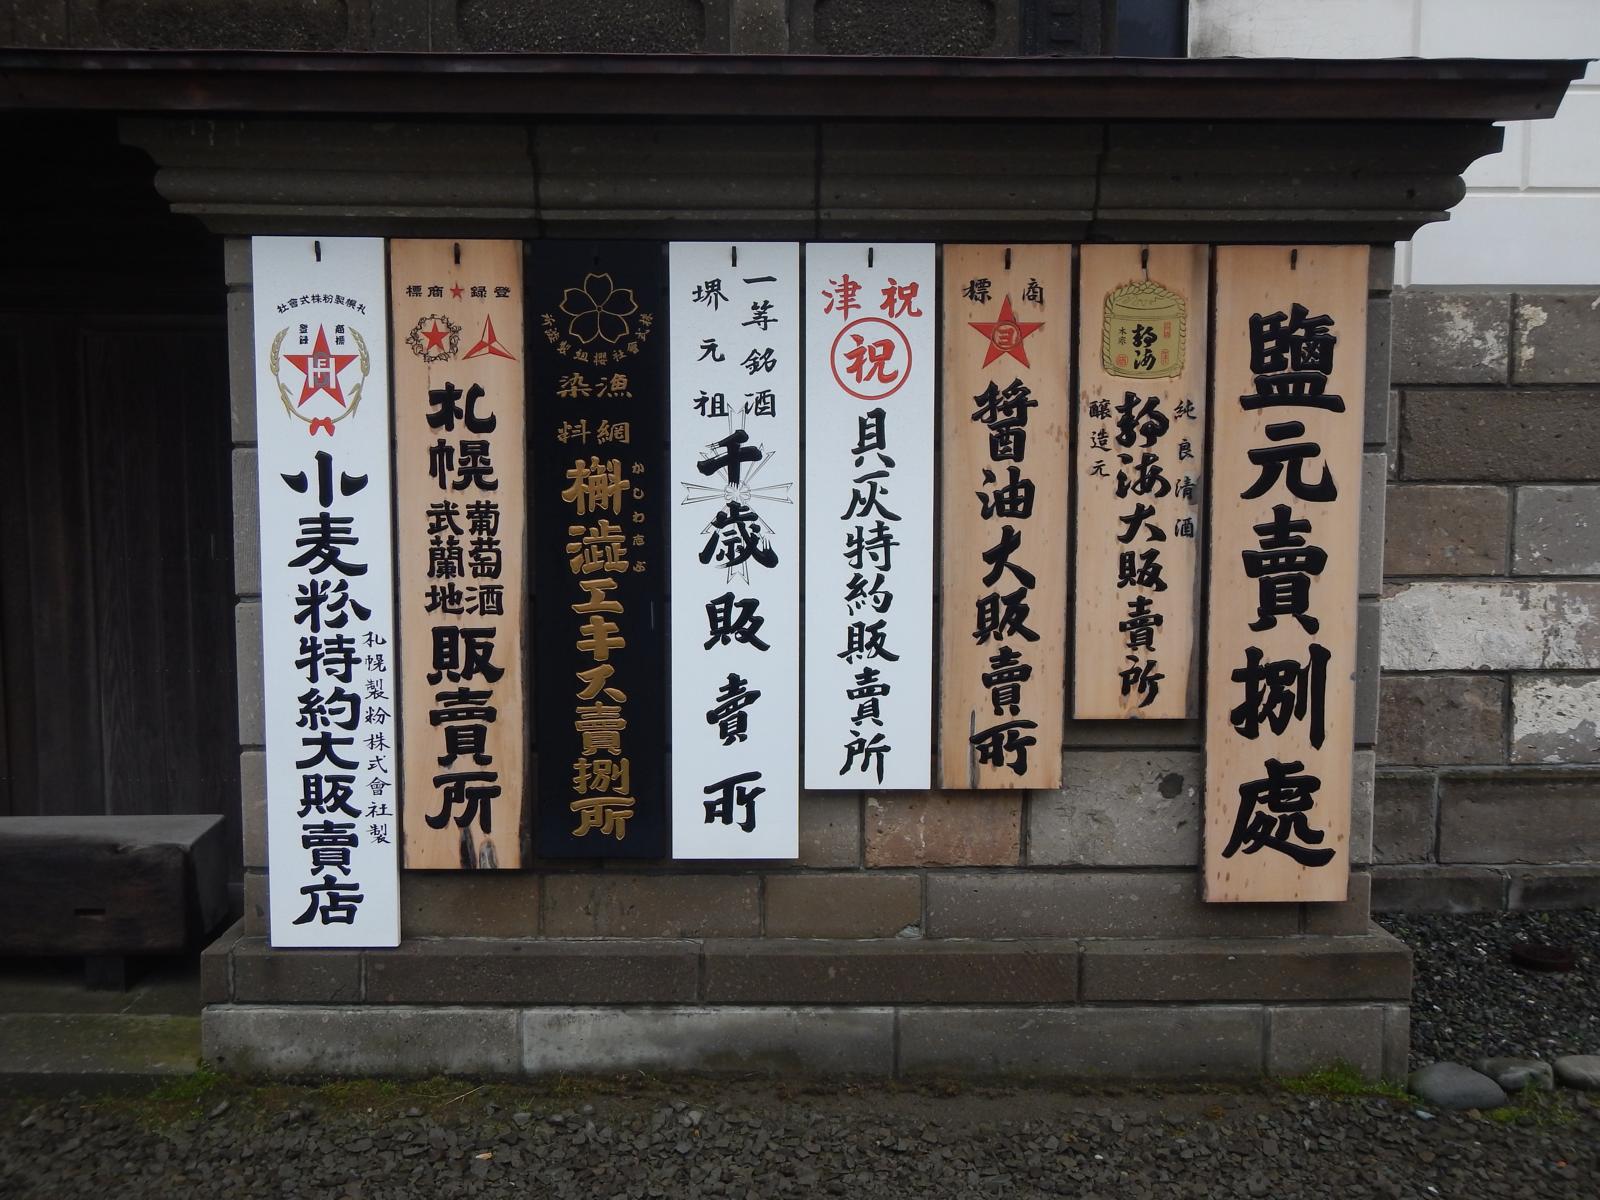 鹽元賣捌處
靜海
純良清酒
靜海大販賣所
醸造元
商標
醤油大販賣所
祝津
祝
貝灰特約販賣所
一等銘酒
堺元祖
千歳販賣所
株式會社櫻組製造所
漁網
染料
槲澁エキス賣捌所
かしわしぶ
登録商標
札幌葡萄酒
武蘭地
販賣所
札幌製粉株式會社
登録
商標
小麦粉特約大販賣店
札幌製粉株式會社製